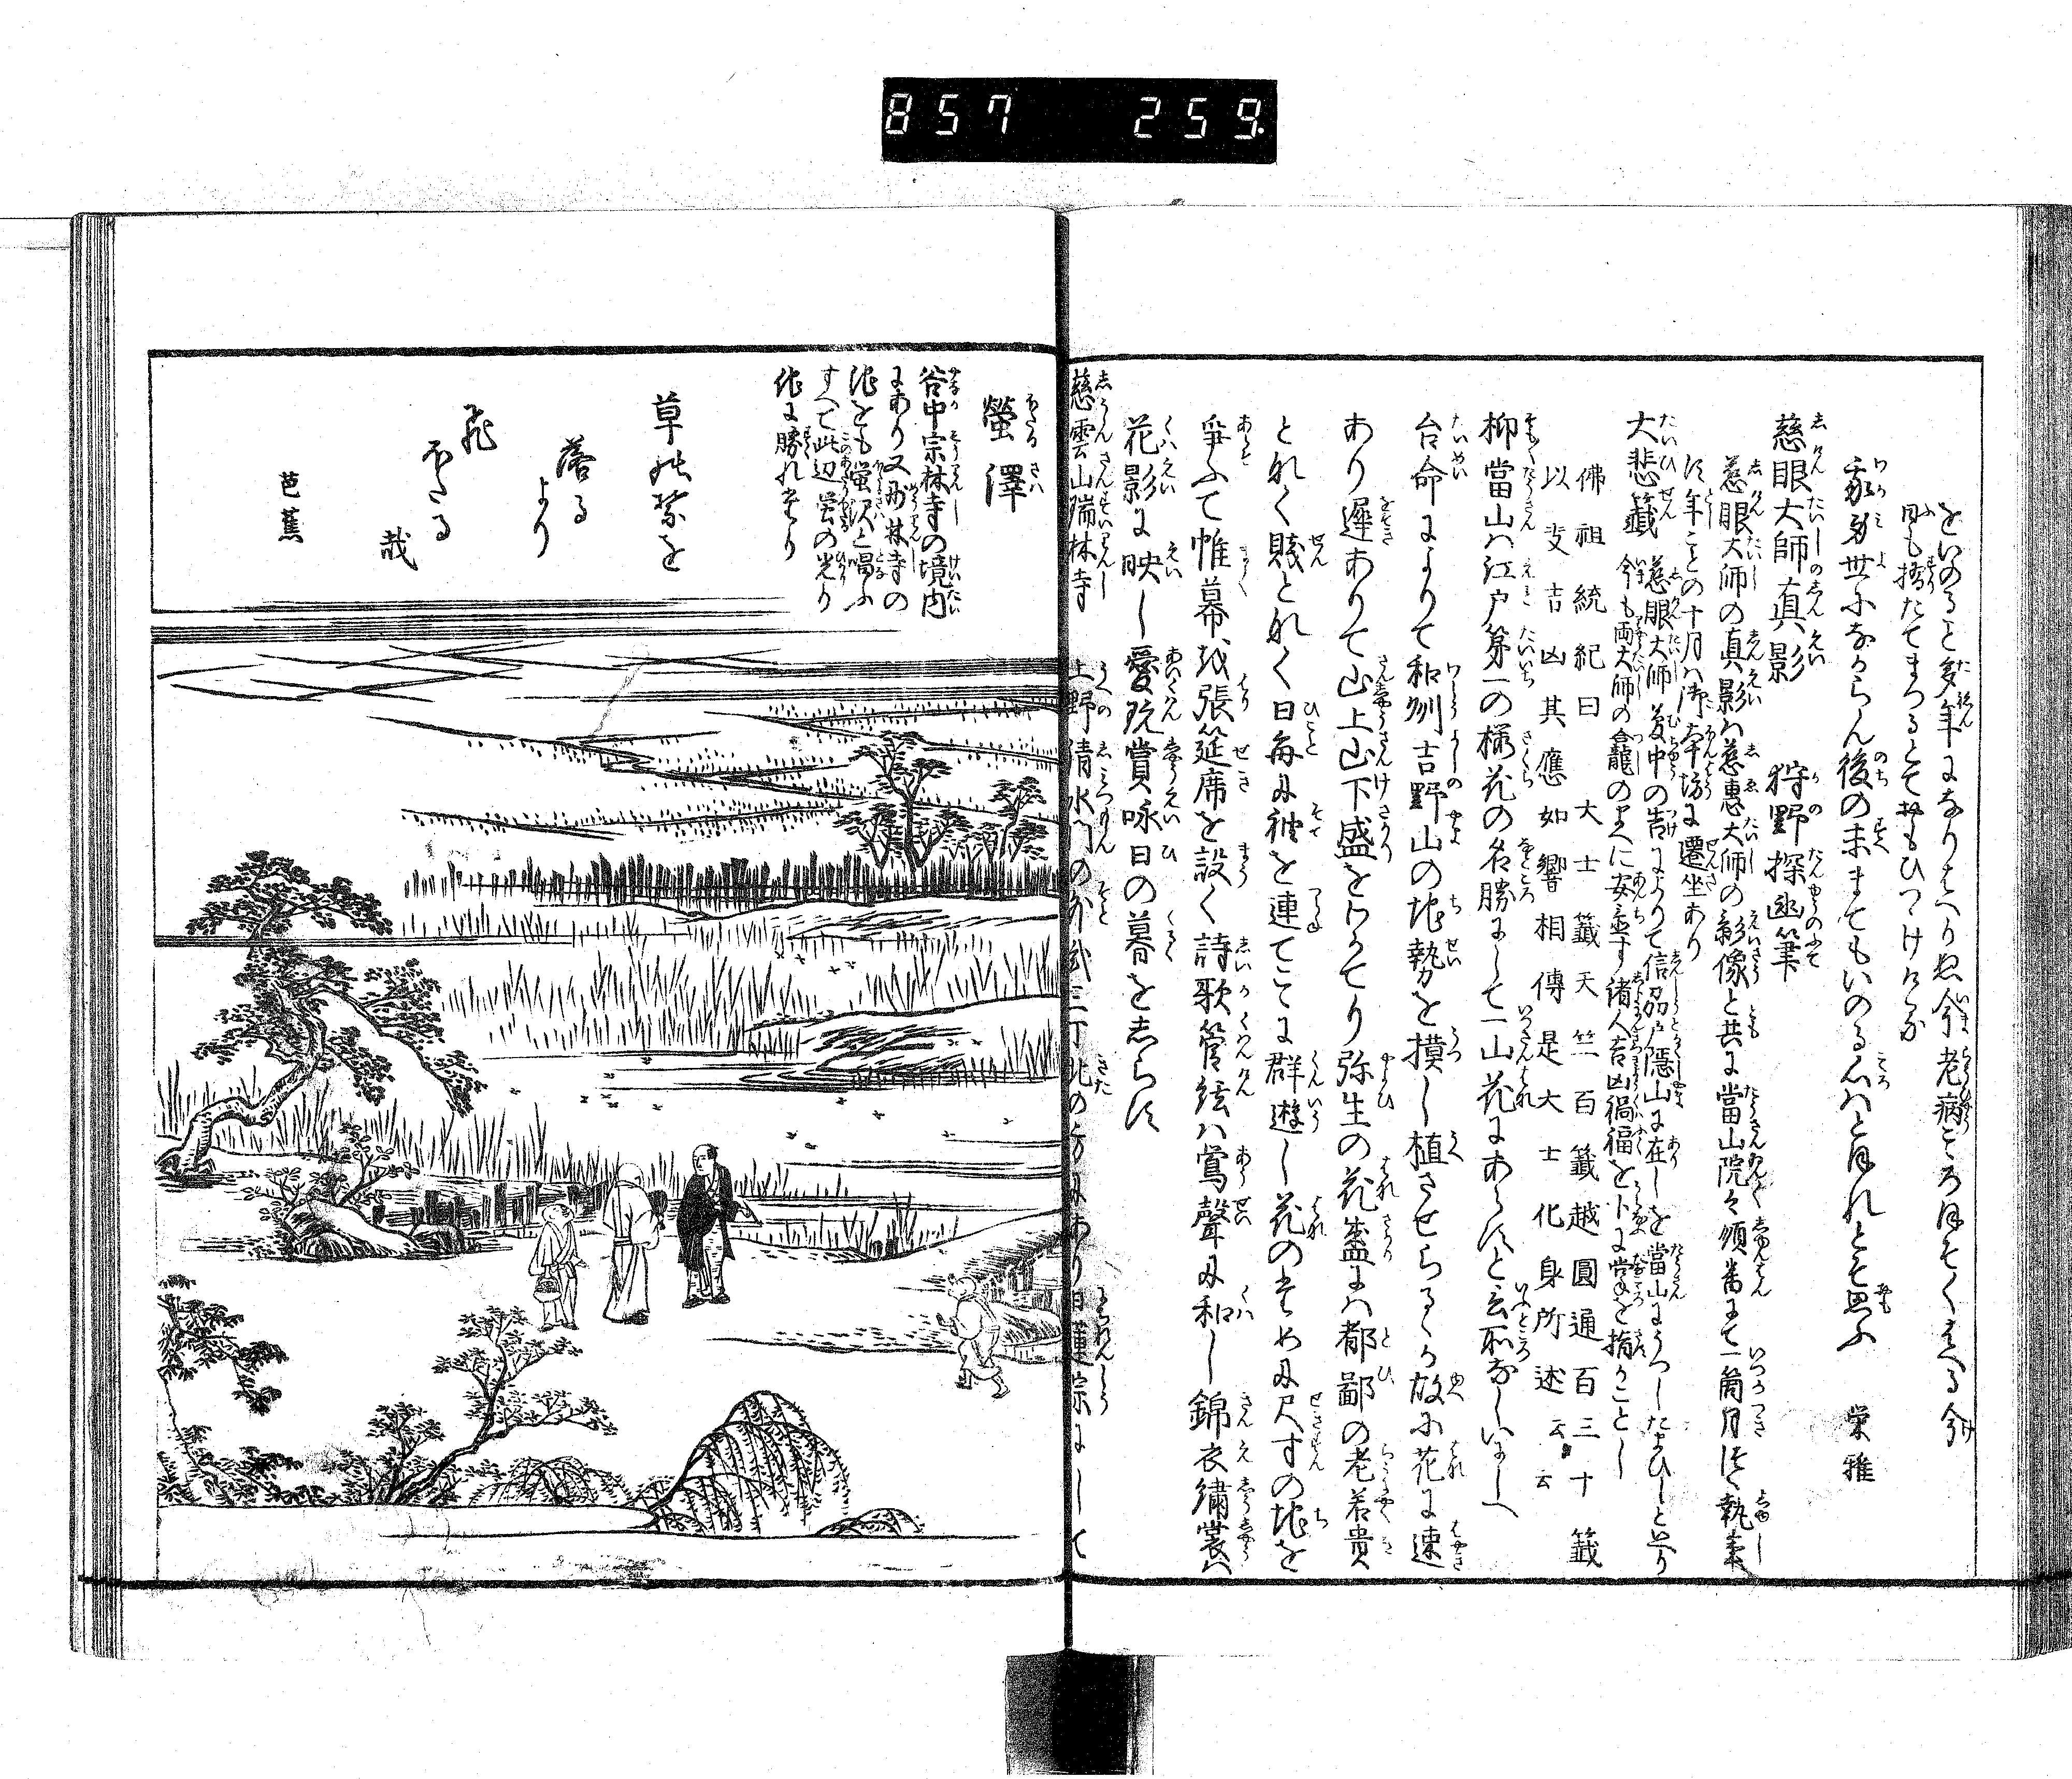 857 259.
をいのること多年になりはへりぬ今老病ころほそくはへる今
日も捨たてまつるとておもひつゝけける
我身世になからん後の末まてもいのる心はとたれとそ思ふ 栄雅
慈眼大師真影 狩野探幽筆
慈眼大師の真影は慈惠大師の影像と共に當山院々順番にて一箇月つゝ執事
す年ことの十月は御本坊に遷坐あり
大悲籤 慈眼大師夢中の告によりて信刕戸隠山に在しを當山にうつしたまひしと云り
今も両大師の龕のまへに安置す諸人吉凶禍福を卜に掌を指かことし
佛祖統紀曰 大士籤天竺百籤越圓通百三十籤
以支吉凶其應如響相傳是大士化身所述云云
抑當山は江戸第一の櫻花の名勝にして一山花にあらすと云所なしいにしへ
台命によりて和州吉野山の地勢を摸し植させらるゝ故に花に速
あり遲ありて山上山下盛をわかてり弥生の花盛には都鄙の老若貴
となく賤となく日毎に袖を連てこゝに群遊し花のそめに尺寸の地を
爭ふて帷幕を張筵席を設く詩歌管絃は鶯聲に和し錦衣繡裳は
花影に映し愛玩賞咏日の暮をしらす
慈雲山瑞林寺 上野清水門の外貳三丁北の方にあり日蓮宗にして
螢澤
谷中宗林寺の境内
にあり又明林寺の
池をも蛍沢と唱ふ
すへて此辺蛍の光り
他に勝れたり
草の葉を
落る
より
飛
ほたる
哉
芭蕉